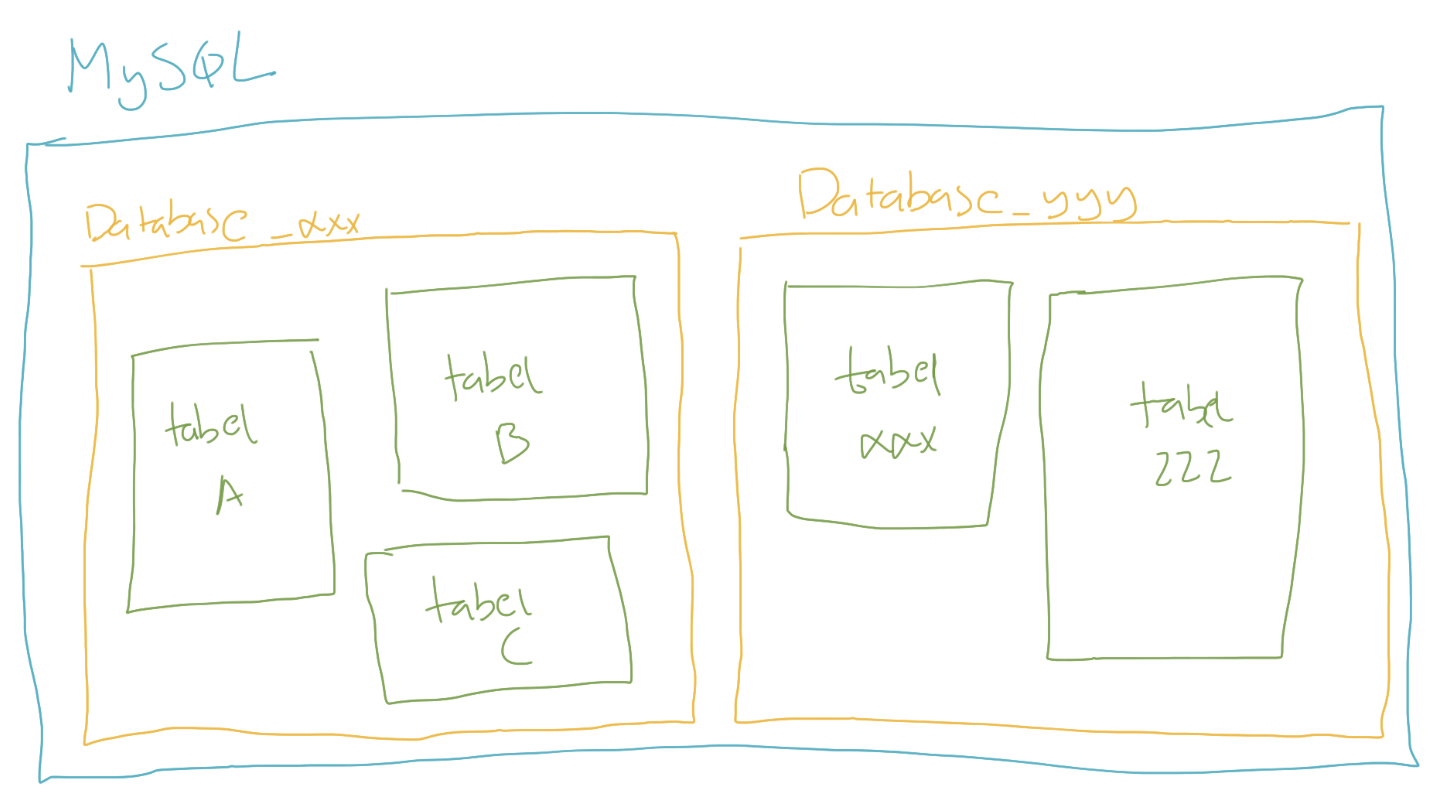 MySQL
Database_xxx
tabel
A
tabel
B
tabel
C
Database_yyy
tabel
xxx
tabel
222